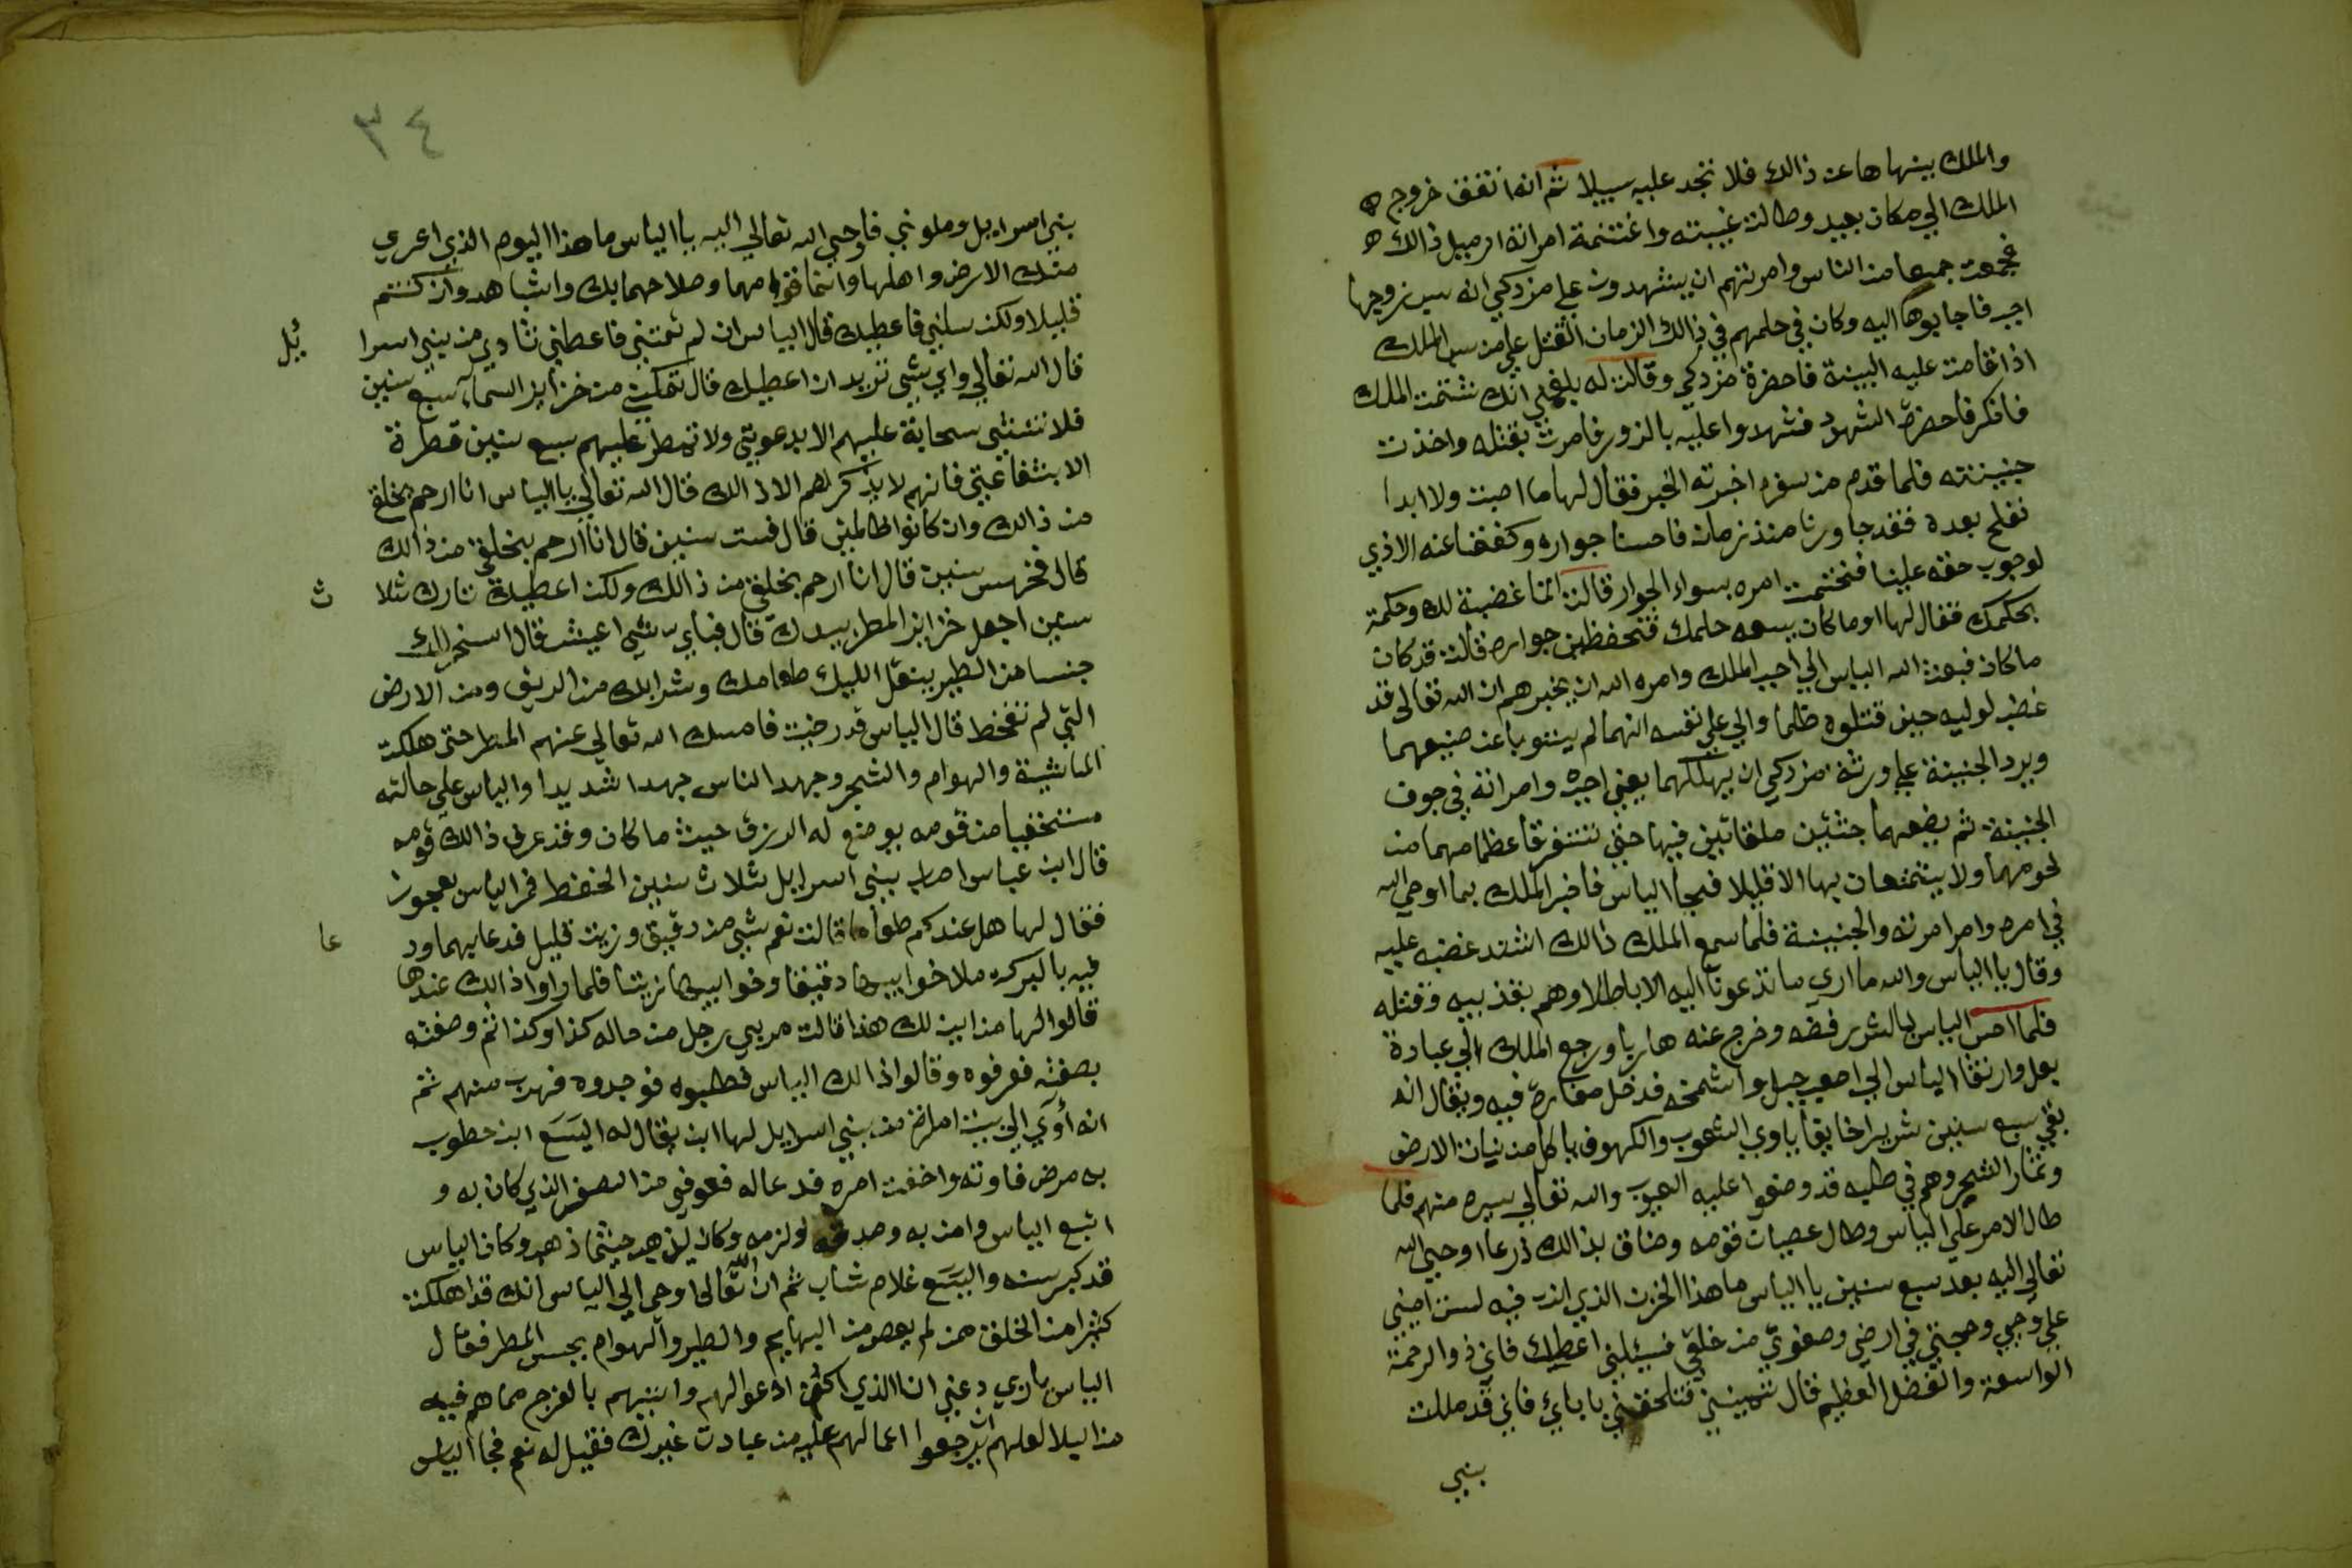 والملك ينهاها عن ذالك فلا تجد عليه سبيلا ثم انه اتفق خروج ه
الملك الي مكان بعيد وطالت غيبته واغتنمة امراته ارميل ذالك ه
فجمعت جميعا من الناس وامرتهم ان يشهدون علي مزدكي انه سب زوجها
اجب فاجابوها اليه وكان في حلمهم في ذالك الزمان القتل علي من سب الملك
اذا قامت عليه البينة فاحضرة مزدكي وقالت له بلغني انك شتمت الملك
فانكر فاحضرة الشهود فشهدوا عليه بالزور فامرت بقتله واخذت
جنينته فلما قدم من سفره اخبرته الخبر فقال لها ما اصبت ولا ابدا
نفلح بعده فقد جاورنا منذ زمان فاحسنا جواره وكففنا عنه الاذي
لوجوب حقه علينا فختمت امره بسواء الجوار قالت انما غضبة لك وحكمة
بحكمك فقال لها اوما كان يسعه حلمك فتحفظين جواره قالت قد كان
ما كان فبعث الله الياس الي اجب الملك وامره الله ان يخبرهم ان الله تعالي قد
غضب لوليه حين قتلوه ظلما والي علي نفسه انهما لم يتوبا عن صنيعهما
ويرد الجنينة علي ورثة مزدكي ان يهلكهما يعني اجب وامراته في جوف
الجنينة ثم يضعهما جثتين ملقاتين فيها حتي تتفرقا عظامهما من
لحومهما ولا يتمتعان بها الا قليلا فجا الياس فاخبر الملك بما اوحي الله
في امره وامر امرته والجنينة فلما سمع الملك ذالك اشتد غضبه عليه
وقال يا الياس والله ما اري ما تدعونا اليه الا باطلا وهم بتعذيبه وقتله
فلما احس الياس بالشر رفضه وخرج عنه هاربا ورجع الملك الي عبادة
بعل وارتقا الياس الي اصعب جبل واشمخه فدخل مغارة فيه ويقال انه
بقي سبع سنين شريدا خايفا ياوي الشعوب والكهوف ياكل من نبات الارض
وثمار الشجر وهم في طلبه قد وضعوا عليه العيون والله تعالي يستره منهم فلما
طال الامر علي الياس وطال عصيان قومه وضاق بذالك ذرعا اوحي الله
تعالي اليه بعد سبع سنين يا الياس ما هذا الحزن الذي انت فيه لست اميني
علي وحيي وحجتي في ارضي وصفوتي من خلقي فسئلني اعطيك فاني ذو الرحمة
الواسعة والفضل العظيم قال تميتني فتلحقني باباي فاني قد مللت
بني
٣٤
بني اسرايل وملوني فاوحي الله تعالي اليه يا الياس ما هذا اليوم الذي اعري
منك الارض واهلها وانما قوامهما وصلاحهما بك واشباهد وان كنتم
قليلا ولكن سلني فاعطيك قال الياس ان لم تمتني فاعطني ثاري من بني اسرا يئل
قال الله تعالي واي شي تريد ان اعطيك قال تمكنني من خزاين السماء سبع سنين
فلا تنشي سحابة عليهم الا بدعوتي ولا تمطر عليهم سبع سنين قطرة
الا بشفاعتي فانهم لا يذكرهم الا ذالك قال الله تعالي يا الياس انا ارحم بخلقي
من ذالك وان كانوا ظالمين قال فست سنين قال انا ارحم بخلقي من ذالك
قال فخمس سنين قال انا ارحم بخلقي من ذالك ولكن اعطيك ثارك ثلا ث
سنين اجعل خزاين المطر بيدك قال فباي شي اعيش قال اسخر لك
جنسا من الطير ينقل اليك طعامك وشرابك من الريف ومن الارض
التي لم تقحط قال الياس قد رضيت فامسك الله تعالي عنهم المطر حتي هلكت
الماشية والهوام والشجر وجهد الناس جهدا شديدا والياس علي حالته
مستخفيا من قومه يوضع له الرزق حيث ما كان وقد عرف ذالك قومه
قال ابن عباس اصاب بني اسرايل ثلاث سنين القحط فمر الياس بعجوز
فقال لها هل عندكم طعام قالت نعم شي من دقيق وزيت قليل فدعا بهما ود عا
فيه بالبركه ملا خوابيها دقيقا وخوابيها زيتا فلما راوا ذالك عندها
قالوا لها من اين لك هذا قالت مر بي رجل من حاله كذا وكذا ثم وصفته
بصفته فعرفوه وقالوا ذالك الياس فطلبوه فوجدوه فهرب منهم ثم
انه أوي الي بيت امراة من بني اسرايل لها ابن يقال له اليسع ابن خطوب
به مرض فاوته واخفت امره فدعا له فعوفي من الضر الذي كان به و
اتبع الياس وامن به وصدقه ولزمه وكان يذهب حيثما ذهب وكان الياس
قد كبر سنه واليسع غلام شاب ثم ان الله تعالي اوحي الي الياس انك قد اهلكت
كثيرا من الخلق ممن لم يعص من البهايم والطير والهوام بحبس المطر فقال
الياس يا ربي دعني انا الذي اكون ادعوا لهم واتيهم بالفرج مما هم فيه
من البلا لعلهم يرجعوا اعمالهم عليه من عبادت غيرك فقيل له نعم فجا الياس